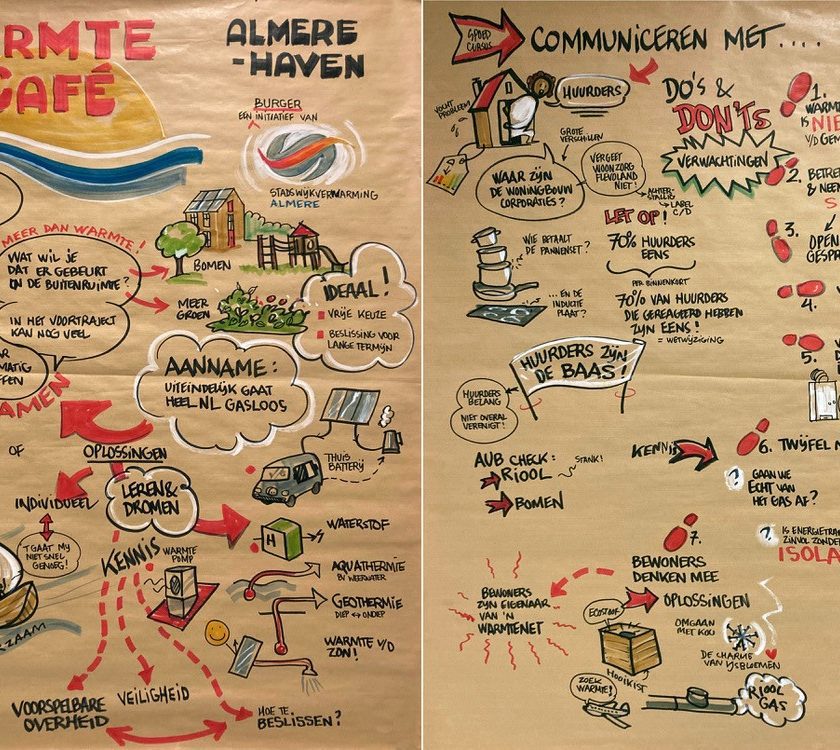 RMTE
CAFÉ
ALMERE
-HAVEN
BURGER
EEN INITIATIEF VAN
STADSWIJKVERWARMING
ALMERE
MEER DAN WARMTE!
WAT WIL JE
DAT ER GEBEURT
IN DE BUITENRUIMTE?
IN HET VOORTRAJECT
KAN NOG VEEL
BOMEN
MEER
GROEN
IDEAAL!
VRIJE KEUZE
BESLISSING VOOR
LANGE TERMIJN
AANNAME:
UITEINDELIJK GAAT
HEEL NL GASLOOS
AR
MATIG
FFEN
AMEN
OF
OPLOSSINGEN
INDIVIDUEEL
LEREN &
DROMEN
THUIS
BATTERIJ
'T GAAT MIJ
NIET SNEL
GENOEG!
KENNIS
WARMTE
POMP
H
WATERSTOF
AQUATHERMIE
BV WEERWATER
GEOTHERMIE
DIEP ↔ ONDIEP
WARMTE V/D
ZON!
RZAAM
VOORSPELBARE
OVERHEID
VEILIGHEID
HOE TE
BESLISSEN?
SPOED
CURSUS
COMMUNICEREN MET....
VOCHT
PROBLEEM
HUURDERS
DO'S &
DON'TS
VERWACHTINGEN
GROTE
VERSCHILLEN
WAAR ZIJN
DE WONINGBOUW
CORPORATIES?
VERGEET
WOONZORG
FLEVOLAND
NIET!
ACHTER-
STALLIG
LABEL
C/D
LET OP!
70% HUURDERS
EENS
PER BINNENKORT
70% VAN HUURDERS
DIE GEREAGEERD HEBBEN
ZIJN EENS!
= WETWIJZIGING
WIE BETAALT
DE PANNENSET?
... EN DE
INDUCTIE
PLAAT?
HUURDERS ZIJN
DE BAAS!
HUURDERS
BELANG
NIET OVERAL
VERENIGT!
AUB CHECK:
RIOOL
STANK!
BOMEN
KENNIS
1.
WARMT
IS NIE
V/D GEM
2. BETRE
& NEE
S
3.
OPEN
GESPR
4.
5.
6. TWIJFEL N
?
GAAN WE
ECHT VAN
HET GAS AF?
?
IS ENERGIETRA
ZINVOL ZONDER
ISOLA
7.
BEWONERS
DENKEN MEE
OPLOSSINGEN
BEWONERS
ZIJN EIGENAAR
VAN 'N
WARMTENET
ECOSTOOF
HOOIKIST
OMGAAN
MET KOU
DE CHARME
VAN IJSBLOEMEN
ZOEK
WARMTE!
RIOOL
GAS